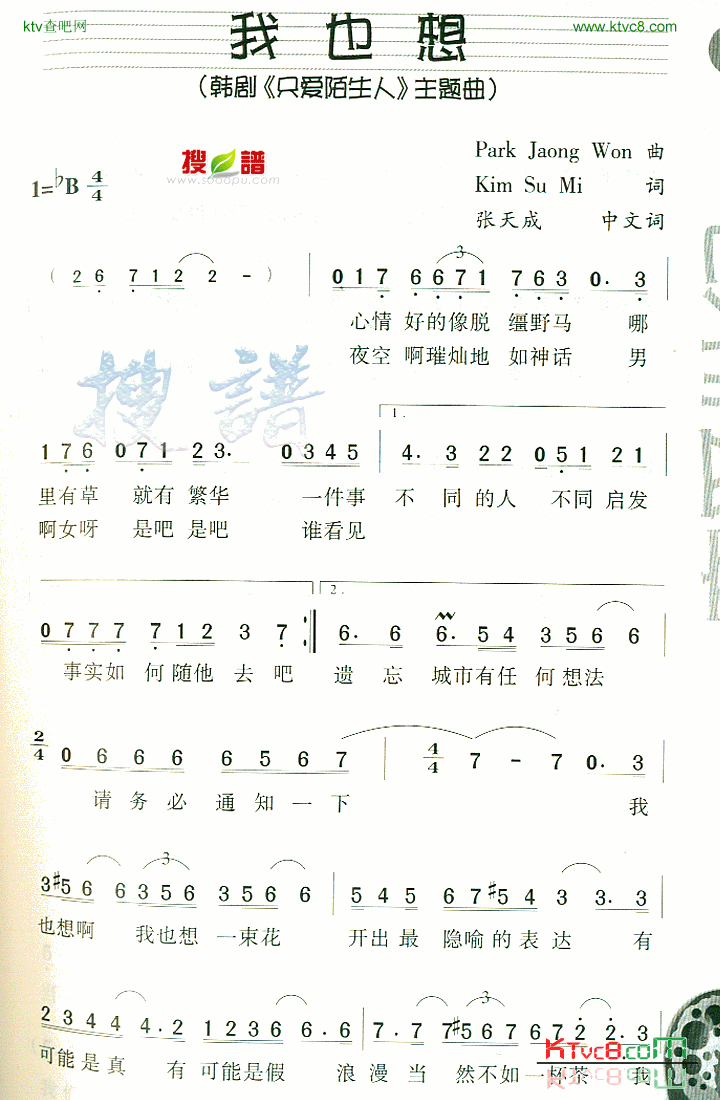 ktv查吧网
www.ktvc8.com
我也想
(韩剧《只爱陌生人》主题曲)
搜谱
www.sooopu.com
Park Jaong Won 曲
1=♭B 4/4
Kim Su Mi 词
张天成 中文词
( 2 6 7 1 2 2 2 - ) 0 1 7 6 6 7 1 7 6 3 0. 3
3
心情 好的像脱 缰野马 哪
夜空 啊璀灿地 如神话 男
搜譜
1.
1 7 6 0 7 1 2 3. 0 3 4 5 4. 3 2 2 0 5 1 2 1
里有草 就有 繁华 一件事 不 同的人 不同启发
啊女呀 是吧 是吧 谁看见
2.
0 7 7 7 7 1 2 3 7 :‖ 6. 6 6. 5 4 3 5 6 6
事实如 何随他 去吧 遗忘 城市有任 何想法
2/4 0 6 6 6 6 5 6 7 4/4 7 - 7 0. 3
请务必 通知一下 我
3
3 #5 6 6 3 5 6 3 5 6 6 5 4 5 6 7 #5 4 3 3 3. 3
也想啊 我也想 一束花 开出最 隐喻的表达 有
3
2 3 4 4 4. 2 1 2 3 6 6. 5 7. 7 7 #5 6 7 6 7 2 2. 3
可能是真 有可能是假 浪漫当 然不如一杯茶 我
KTvc8.com